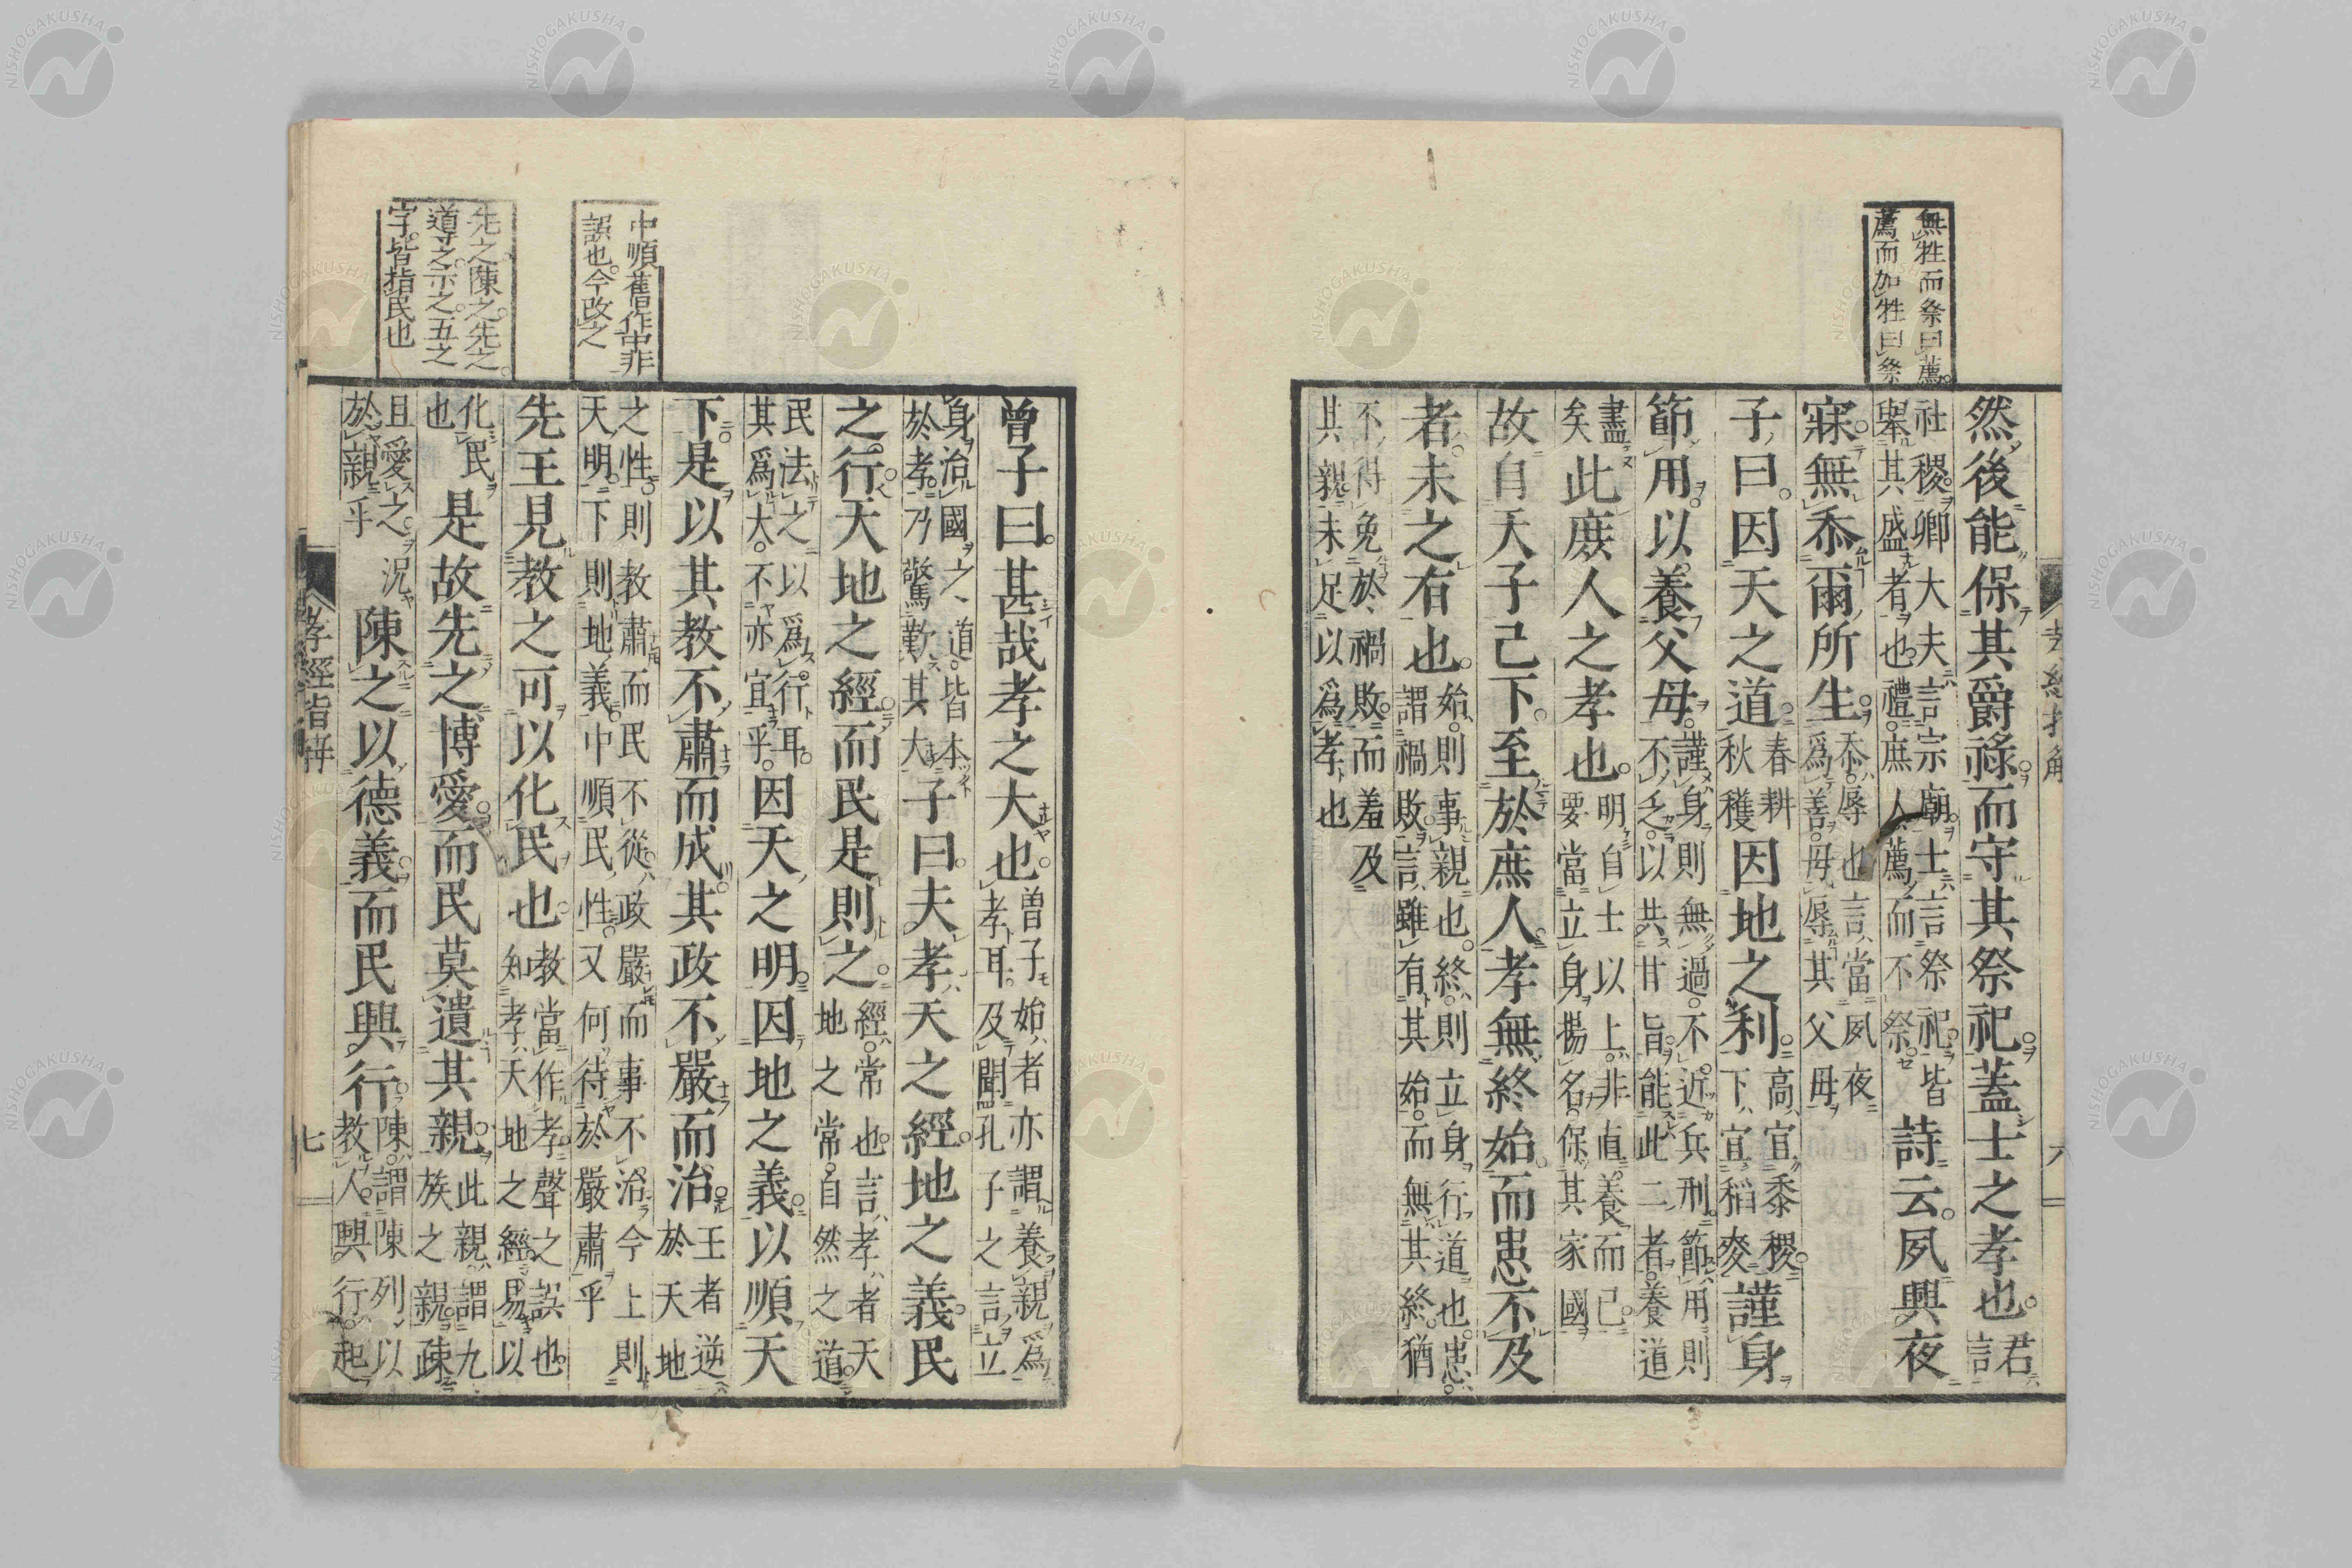 無牲而祭曰薦
薦而加牲曰祭
然後能保其爵祿而守其祭祀蓋士之孝也君言
社稷卿大夫言宗廟士言祭祀皆擧其盛者也禮庶人薦而不祭詩云夙興夜
寐無忝爾所生忝辱也言當夙夜爲善毋辱其父母
子曰因天之道春耕秋穫因地之利高宜黍稷下宜稻麥謹身
節用以養父母謹身則無過不近兵刑節用則不乏以共甘旨能此二者養道
盡矣此庶人之孝也明自士以上非直養而已要當立身揚名保其家國
故自天子己下至於庶人孝無終始而患不及
者未之有也始則事親也終則立身行道也患謂禍敗言雖有其始而無其終猶
不得免於禍敗而羞及其親未足以爲孝也
六
中順舊作中非
誤也今改之
先之陳之先之
導之示之五之
字皆指民也
曾子曰甚哉孝之大也曽子始者亦謂養親爲孝耳及聞孔子之言立
身治國之道皆本於孝乃驚歎其大子曰夫孝天之經地之義民
之行天地之經而民是則之經常也言孝者天地之常自然之道
民法之以爲行耳其爲大不亦宜乎因天之明因地之義以順天
下是以其教不肅而成其政不嚴而治王者逆於天地
之性則教肅而民不從政嚴而事不治今上則天明下則地義中順民性又何待於嚴肅乎
先王見教之可以化民也教當作孝聲之誤也知孝天地之經易以
化民也是故先之博愛而民莫遺其親此親謂九族之親疎
且愛之況於親乎陳之以德義而民興行陳謂陳列以教人興行起
孝經指解
七